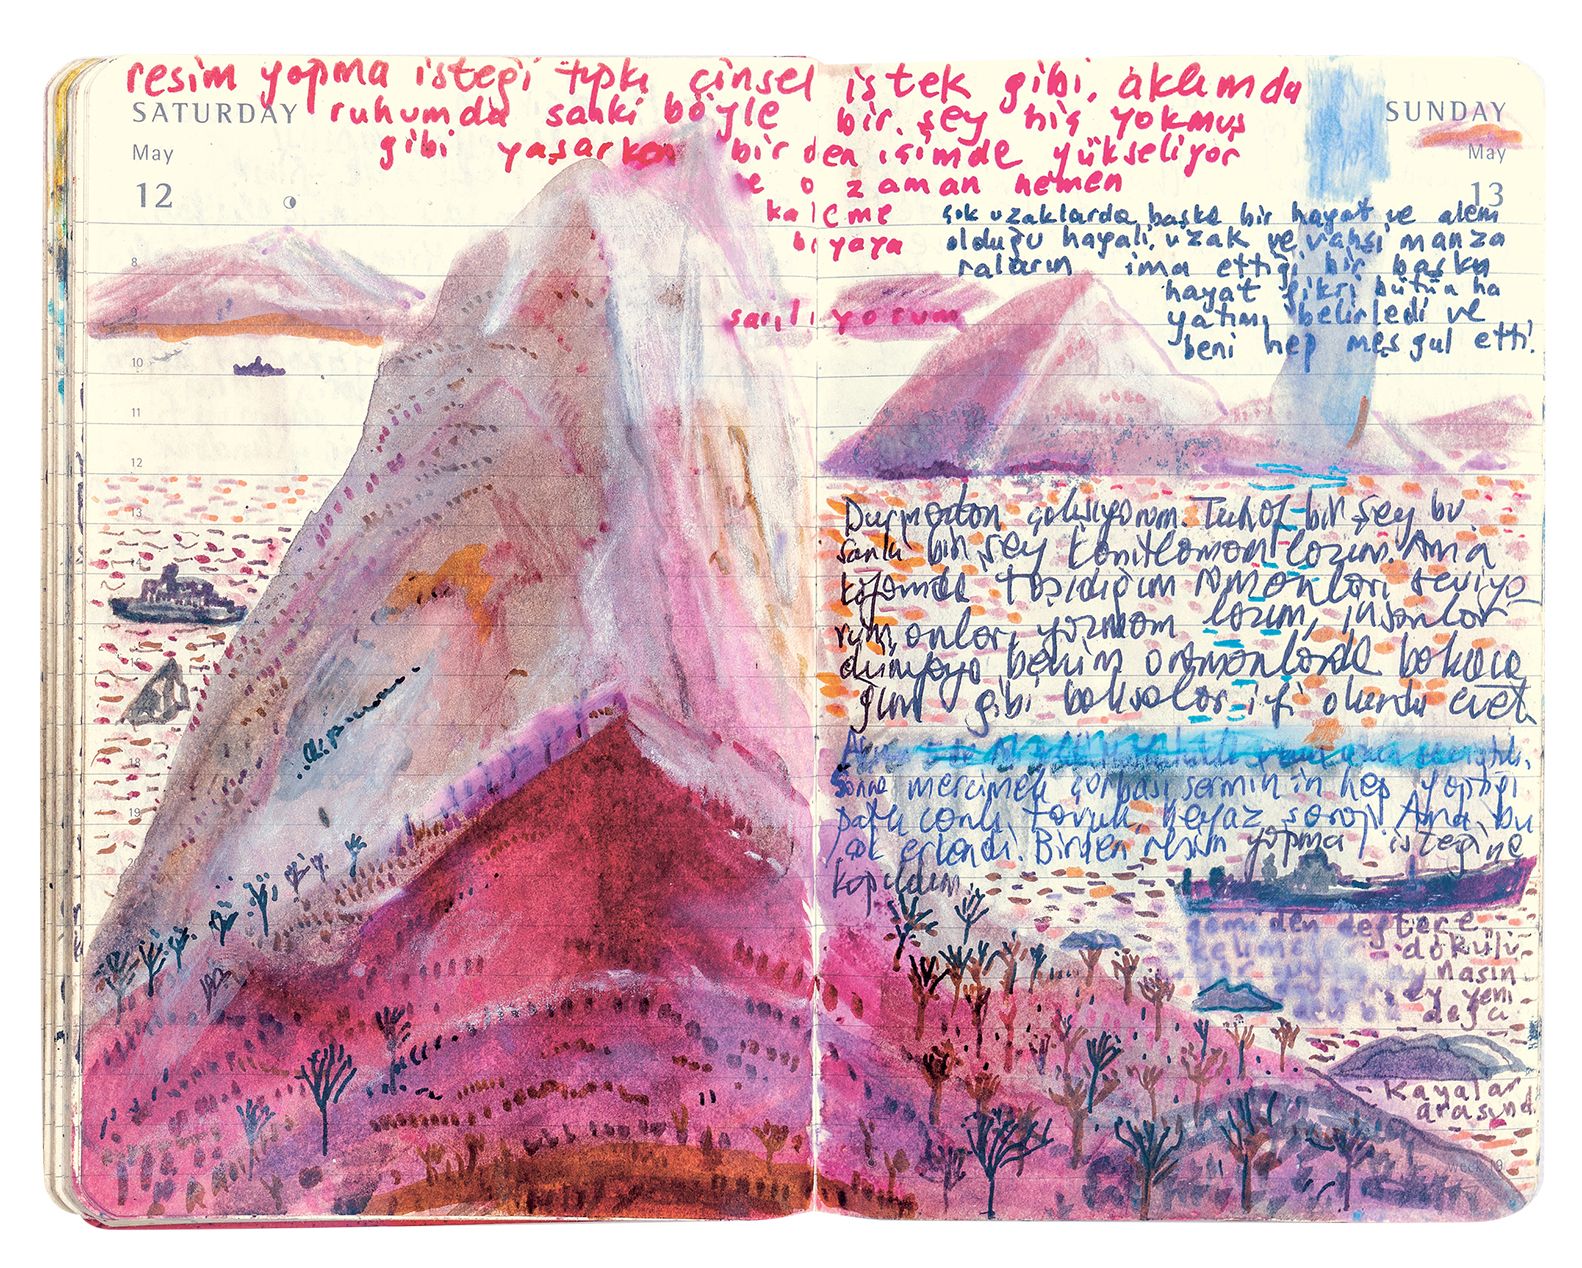 resim yapma isteği tıpkı cinsel istek gibi. aklımda
SATURDAY
ruhumda sanki böyle bir şey hiç yokmuş
SUNDAY
May
gibi yaşarken birden içimde yükseliyor
May
12
ve o zaman hemen
13
kaleme
boyaya
sarılıyorum
çok uzaklarda başka bir hayat ve alem
olduğu hayali, uzak ve vahşi manza
raların ima ettiği bir başka
hayat fikri bütün ha
yatımı belirledi ve
beni hep meşgul etti.
8
9
10
11
12
13
14
16
18
19
20
Durmadan çalışıyorum. Tuhaf bir şey bu
sanki bir şey kanıtlamam lazım. Ama
kafamda taşıdığım romanları seviyo
rum, onları yazmam lazım, insanlar
dünyaya benim romanlarda bakaca
ğım gibi baksalar iyi olurdu evet
Sonra mercimek çorbası Şermin'in hep yaptığı
patlıcanlı tavuk, beyaz şarap. Ama bu
çok erkendi. Birden resim yapma isteğine
kapıldım.
gemiden deftere
kelimeler dökülü-
bir
yeni
defa
- Kayalar
arasında
Week 19